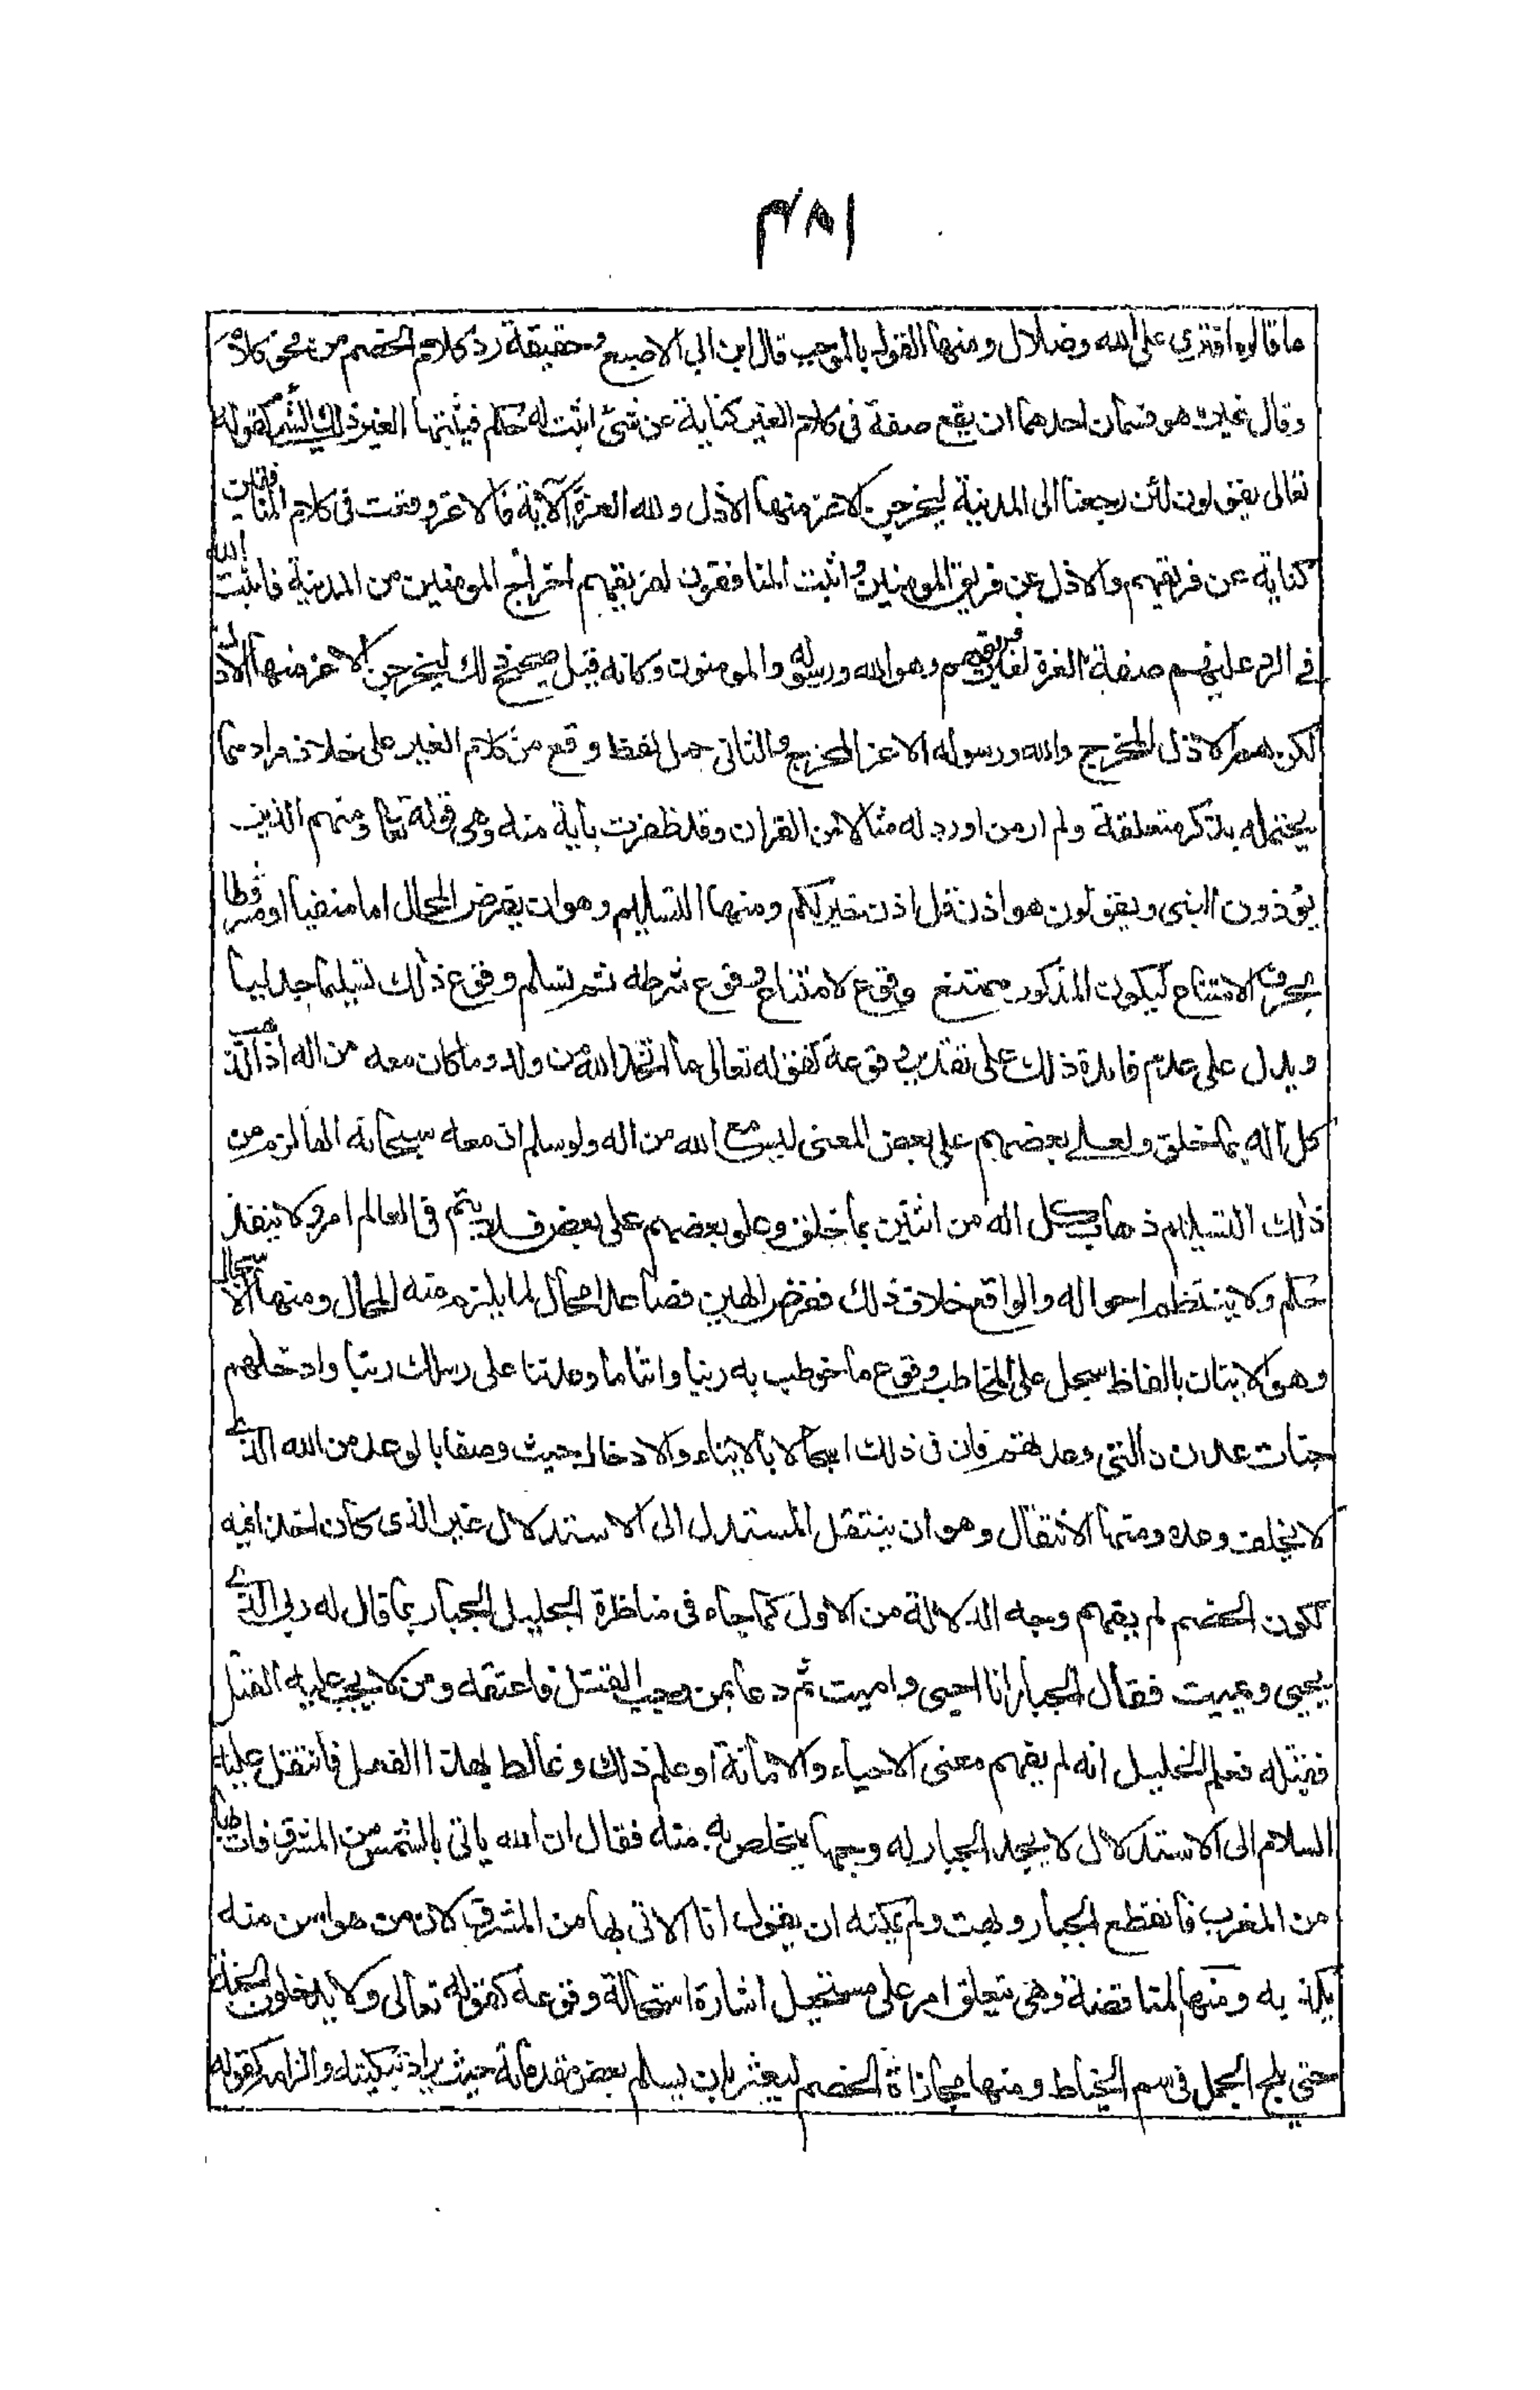 ٣٨١
ما قالوه افتري على الله وضلال ومنها القول بالموجب قال ابن ابي الاصبع وحقيقة رد كلام الخصم من فحوى كلامه
وقال غيره هو قسمان احدهما ان يقع صفة فى كلام الغير كناية عن شئ اثبت له حكم فيثبتها لغير ذلك الشئ كقوله
تعالى يقولون لئن رجعنا الى المدينة ليخرجن الاعز منها الاذل ولله العزة الآية فالاعز وقعت فى كلام المنافقين
كناية عن فريقهم والاذل عن فريق المومنين واثبت المنافقون لفريقهم اخراج المومنين من المدينة فاثبت الله
فى الرد عليهم صفة العزة لغير فريقهم وهو الله ورسوله والمومنون وكانه قيل صحيح ذلك ليخرجن الاعز منها الاذل
لكن هم الاذل المخرج والله ورسوله الاعز المخرج والثانى حمل لفظ وقع من كلام الغير على خلاف مراده مما
يحتمله بذكر متعلقة ولم ار من اورد له مثالا من القران وقد ظفرت بآية منه وهى قوله تعالى ومنهم الذين
يؤذون النبى ويقولون هو اذن قل اذن خير لكم ومنها التسليم وهو ان يفرض المحال اما منفيا او مشروطا
بحرف الامتناع ليكون المذكور ممتنع وقوع لامتناع وقوع شرطه ثم تسلم وقوع ذلك تسليما جدليا
ويدل على عدم فائدة ذلك على تقدير وقوعه كقوله تعالى ما اتخذ الله من ولد وما كان معه من اله اذا لذهب
كل اله بما خلق ولعلى بعضهم على بعض المعنى ليس مع الله من اله ولو سلم ان معه سبحانه الها لزم من
ذلك التسليم ذهاب كل اله من اثنين بما خلق وعلو بعضهم على بعض فلا يتم فى العالم امر ولا ينفذ
حكم ولا ينتظم احواله والواقع خلاف ذلك ففرض الهين فصاعدا محال لما يلزم منه المحال ومنها الاسجال
وهو الاتيان بالفاظ سجل على المخاطب وقوع ما خوطب به ربنا واتنا ما وعدتنا على رسلك ربنا وادخلهم
جنات عدن ن التى وعدتهم فان فى ذلك اسجالا بالايتاء والادخال حيث وصفا بالوعد من الله الذى
لا يخلف وعده ومنها الانتقال وهو ان ينتقل المستدل الى الاستدلال غير الذى كان اخذا فيه
لكون الخصم لم يفهم وجه الدلالة من الاول كما جاء فى مناظرة الجليل الجبار بما قال له ربى الذى
يحيى ويميت فقال الجبار انا احيى واميت ثم دعا بمن وجب القتل فاعتقه ومن لا يجب عليه القتل
فقتله فعلم الخليل انه لم يفهم معنى الاحياء والاماتة او علم ذلك وغالط بهذا الفعل فانتقل عليه
السلام الى الاستدلال لا يجد الجبار له وجها يتخلص به منه فقال ان الله ياتى بالشمس من المشرق فات بها
من المغرب فانقطع الجبار وبهت ولم يمكنه ان يقول انا الاتى بها من المشرق لان من هو اسن منه
يكذبه ومنها المناقضة وهى تعلق امر على مستحيل اشارة استحالة وقوعه كقوله تعالى ولا يدخلون الجنة
حتى يلج الجمل فى سم الخياط ومنها مجازاة الخصم ليعثر بان يسلم بعض مقدماته حيث يراد تبكيته والزامه كقوله